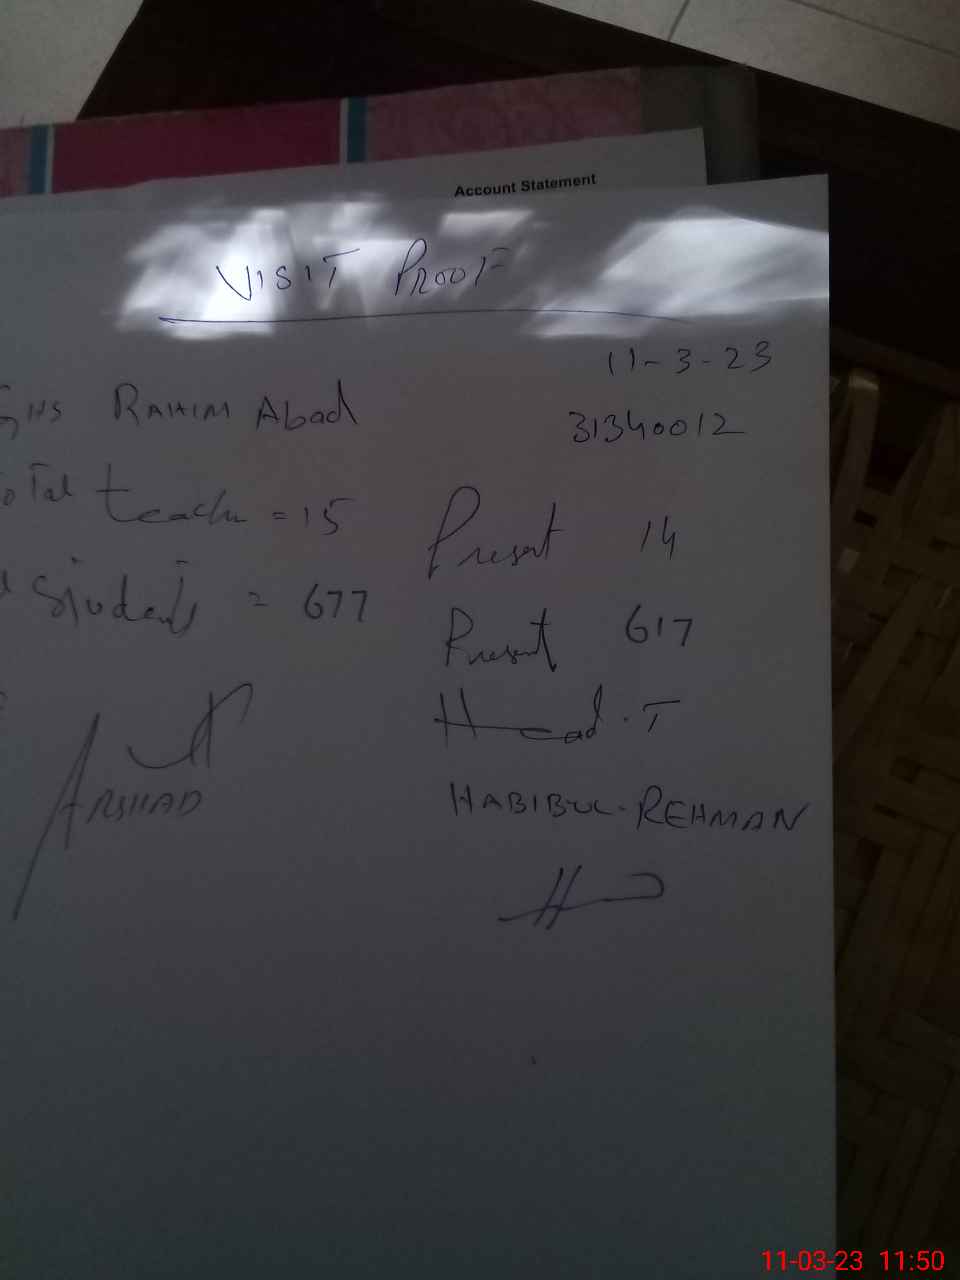 Account Statement
VISIT PROOF
11-3-23
GHS RAHIM Abad 31340012
Total teach = 15 Present 14
Students = 677 Present 617
Head.T
ARSHAD HABIBUL-REHMAN
11-03-23 11:50